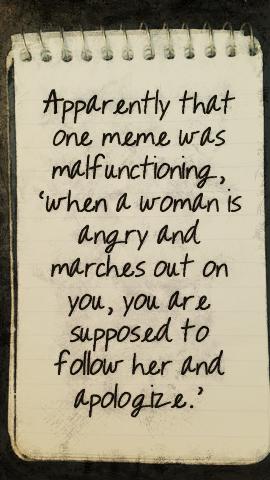 Apparently that
one meme was
malfunctioning,
'when a woman is
angry and
marches out on
you, you are
supposed to
follow her and
apologize.'